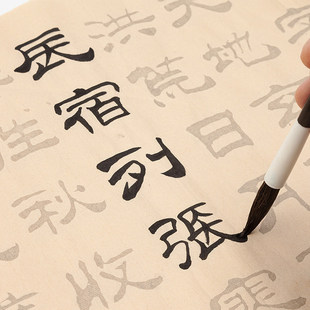 天地玄
洪荒日
辰宿列張
往秋收